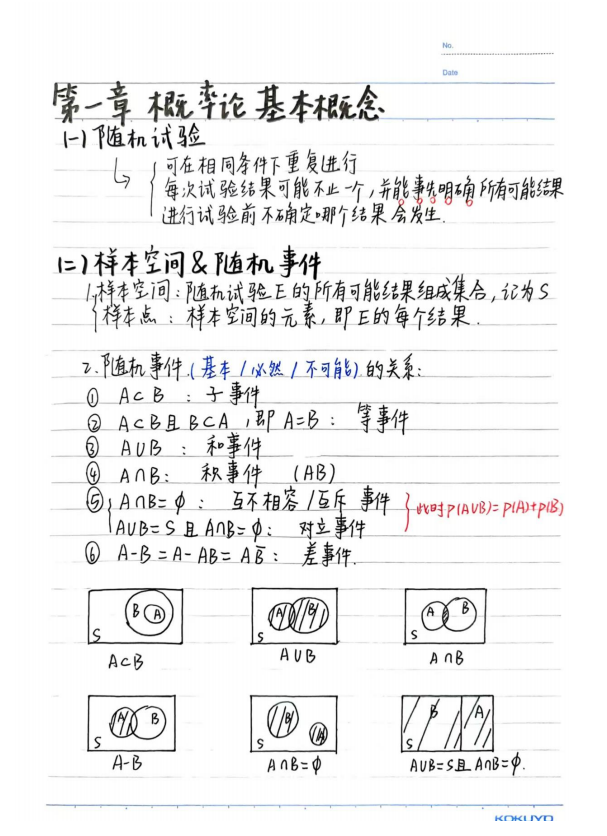 No.
Date
第一章 概率论基本概念
(一) 随机试验
可在相同条件下重复进行
每次试验结果可能不止一个，并能事先明确所有可能结果
进行试验前不确定哪个结果会发生.
(二) 样本空间&随机事件
1. 样本空间：随机试验E的所有可能结果组成集合，记为S
样本点：样本空间的元素，即E的每个结果.
2. 随机事件(基本/必然/不可能)的关系：
① A⊂B：子事件
② A⊂B且B⊂A，即A=B：等事件
③ A∪B：和事件
④ A∩B：积事件 (AB)
⑤ A∩B=φ：互不相容/互斥 事件
此时P(A∪B)=P(A)+P(B)
A∪B=S且A∩B=φ：对立事件
⑥ A-B=A-AB=AB̅：差事件.
B A S
A B S
A B S
A⊂B
A∪B
A∩B
A B S
B A S
B A S
A-B
A∩B=φ
A∪B=S且A∩B=φ.
KOKUYO